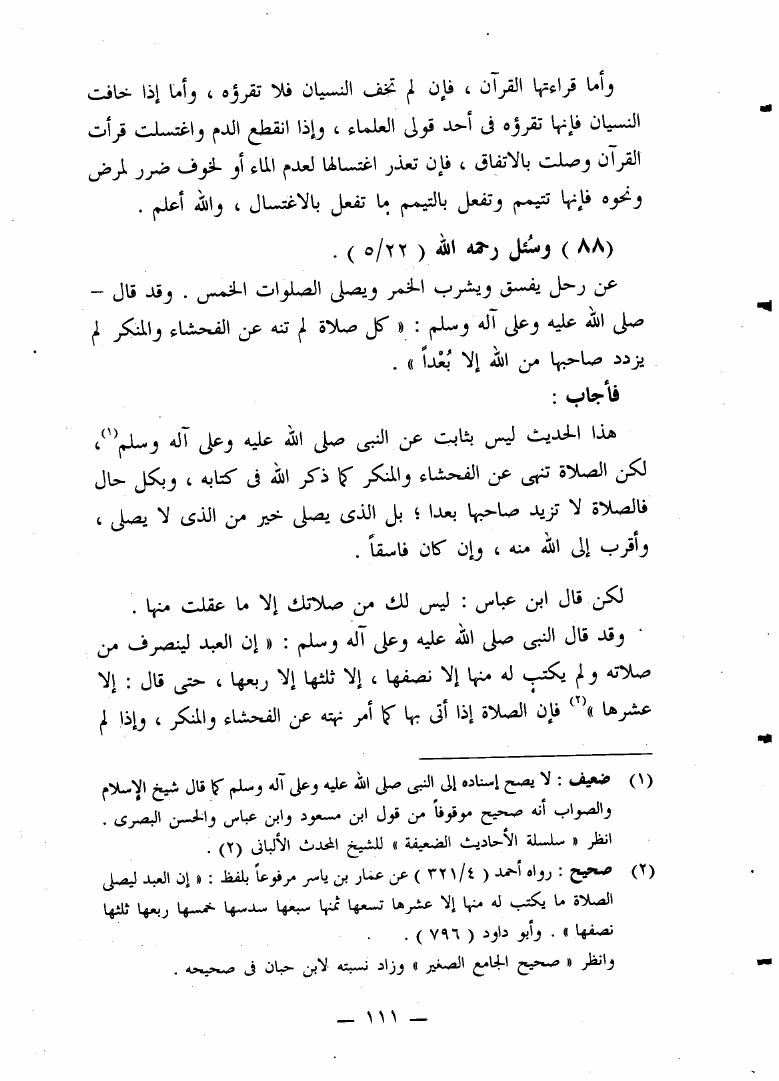 وأما قراءتها القرآن ، فإن لم تخف النسيان فلا تقرؤه ، وأما إذا خافت
النسيان فإنها تقرؤه فى أحد قولى العلماء ، وإذا انقطع الدم واغتسلت قرأت
القرآن وصلت بالاتفاق ، فإن تعذر اغتسالها لعدم الماء أو لخوف ضرر لمرض
ونحوه فإنها تتيمم وتفعل بالتيمم ما تفعل بالاغتسال ، والله أعلم .
(٨٨) وسُئل رحمه الله ( ٥/٢٢ ) .
عن رحل يفسق ويشرب الخمر ويصلى الصلوات الخمس . وقد قال –
صلى الله عليه وعلى آله وسلم : « كل صلاة لم تنه عن الفحشاء والمنكر لم
يزدد صاحبها من الله إلا بُعْداً » .
فأجاب :
هذا الحديث ليس بثابت عن النبى صلى الله عليه وعلى آله وسلم(١)،
لكن الصلاة تنهى عن الفحشاء والمنكر كما ذكر الله فى كتابه ، وبكل حال
فالصلاة لا تزيد صاحبها بعدا ؛ بل الذى يصلى خير من الذى لا يصلى ،
وأقرب إلى الله منه ، وإن كان فاسقاً .
لكن قال ابن عباس : ليس لك من صلاتك إلا ما عقلت منها .
وقد قال النبى صلى الله عليه وعلى آله وسلم : « إن العبد لينصرف من
صلاته ولم يكتب له منها إلا نصفها ، إلا ثلثها إلا ربعها ، حتى قال : إلا
عشرها »(٢) فإن الصلاة إذا أتى بها كما أمر نهته عن الفحشاء والمنكر ، وإذا لم
(١) ضعيف : لا يصح إسناده إلى النبى صلى الله عليه وعلى آله وسلم كما قال شيخ الإسلام
والصواب أنه صحيح موقوفاً من قول ابن مسعود وابن عباس والحسن البصرى .
انظر « سلسلة الأحاديث الضعيفة » للشيخ المحدث الألبانى (٢) .
(٢) صحيح : رواه أحمد ( ٣٢١/٤ ) عن عمار بن ياسر مرفوعاً بلفظ : « إن العبد ليصلى
الصلاة ما يكتب له منها إلا عشرها تسعها ثمنها سبعها سدسها خمسها ربعها ثلثها
نصفها » . وأبو داود ( ٧٩٦ ) .
وانظر « صحيح الجامع الصغير » وزاد نسبته لابن حبان فى صحيحه .
— ١١١ —